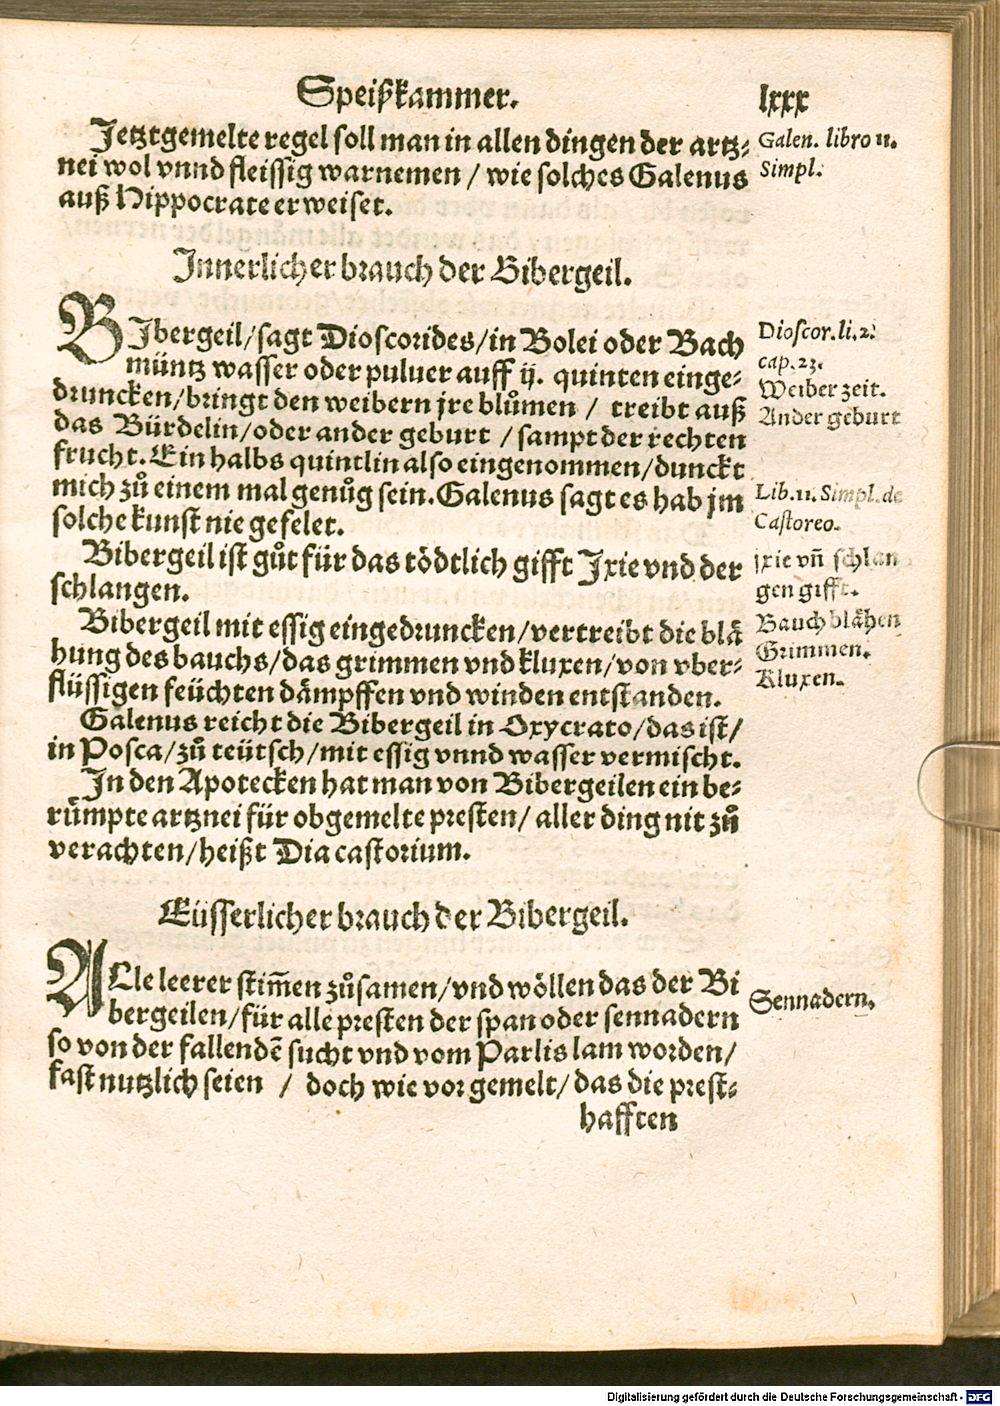 Speißkammer. lxxx
Jetztgemelte regel soll man in allen dingen der artz-
nei wol vnnd fleissig warnemen / wie solches Galenus
auß Hippocrate erweiset.
Galen. libro 11.
Simpl.
Innerlicher brauch der Bibergeil.
BJbergeil/sagt Dioscorides/in Bolei oder Bach
müntz wasser oder puluer auff ij. quinten einge-
druncken/bringt den weibern jre blůmen / treibt auß
das Bürdelin/oder ander geburt / sampt der rechten
frucht. Ein halbs quintlin also eingenommen/dunckt
mich zů einem mal genůg sein. Galenus sagt es hab jm
solche kunst nie gefelet.
Dioscor. li. 2.
cap. 23.
Weiber zeit.
Ander geburt
Lib. 11. Simpl. de
Castoreo.
Bibergeil ist gůt für das tödtlich gifft Ixie vnd der
schlangen.
jxie vñ schlan
gen gifft.
Bibergeil mit essig eingedruncken/vertreibt die blä
hung des bauchs/das grimmen vnd kluxen/von vber-
flüssigen feüchten dämpffen vnd winden entstanden.
Bauch blähen
Grimmen.
Kluxen.
Galenus reicht die Bibergeil in Oxycrato/das ist/
in Posca/zů teütsch/mit essig vnnd wasser vermischt.
In den Apotecken hat man von Bibergeilen ein be-
rümpte artznei für obgemelte presten/ aller ding nit zů
verachten/heißt Diacastorium.
Eüsserlicher brauch der Bibergeil.
ALle leerer stim̃en zůsamen/vnd wöllen das der Bi
bergeilen/für alle presten der span oder sennadern
so von der fallendẽ sucht vnd vom Parlis lam worden/
fast nutzlich seien / doch wie vor gemelt/das die prest-
hafften
Sennadern.
Digitalisierung gefördert durch die Deutsche Forschungsgemeinschaft - DFG